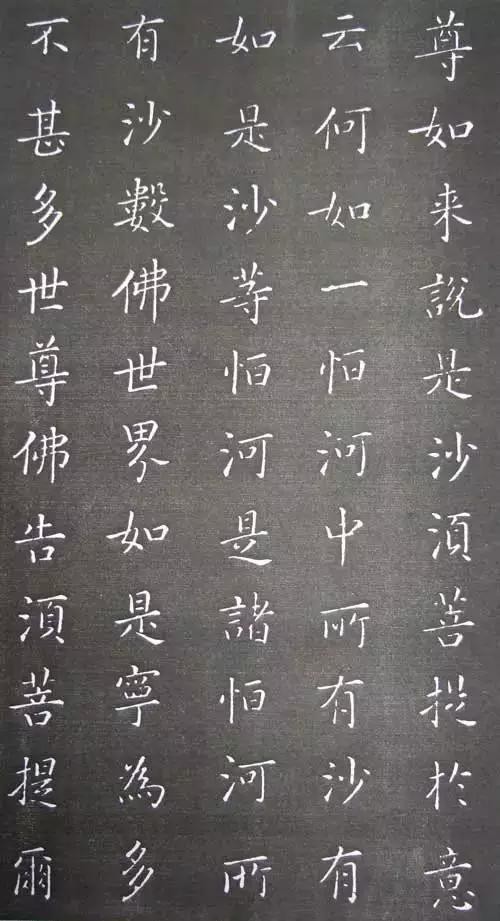 尊如来說是沙湏菩提於意
云何如一恒河中所有沙有
如是沙等恒河是諸恒河所
有沙數佛世界如是寧為多
不甚多世尊佛告湏菩提爾